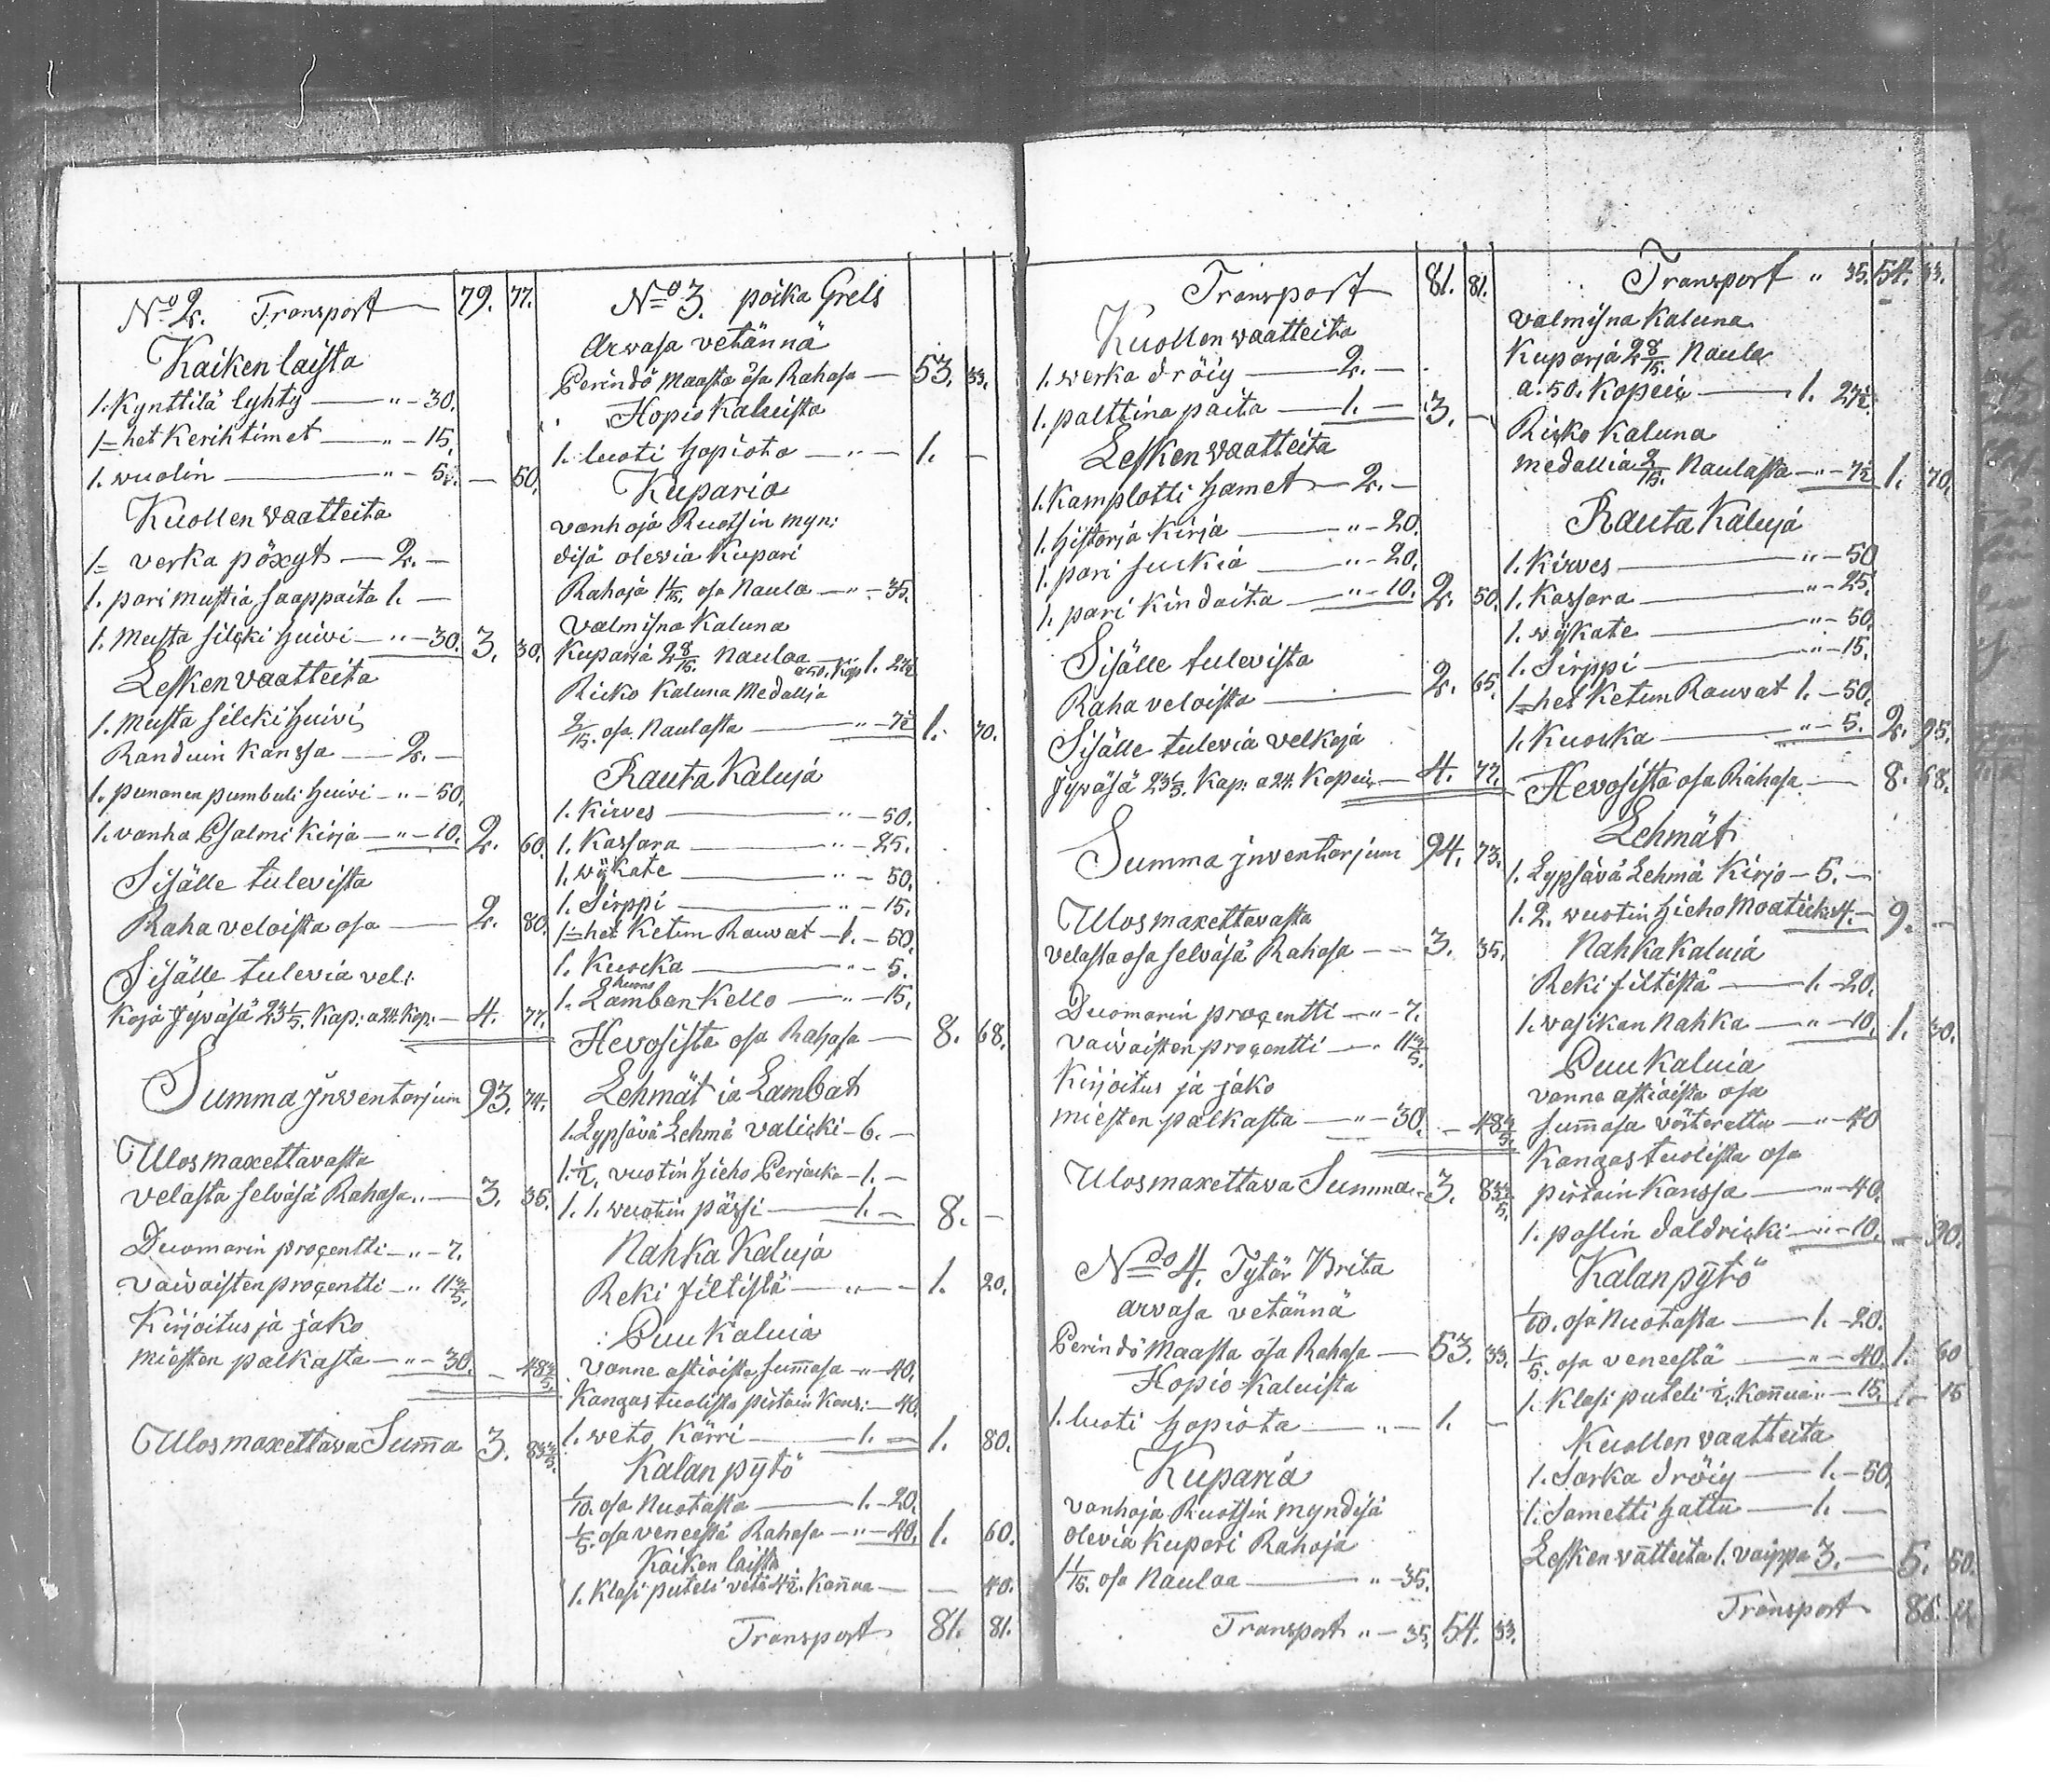 No 2. Transport — 79. 77.
Kaiken laista
1. Kynttilä lyhty — " — 30.
1= het Kerihtimet — " — 15.
1. wuolin — " — 5. — 50.
Kuollen waatteita
1= verka pöxyt — 2. —
1. pari mustia saappaita 1. —
1. Musta silcki huivi — " — 30. 3. 30.
Lesken vaatteita
1. Musta silcki huivi
Randuin kanssa — 2. —
1. punanen pumbuli huivi — " — 50.
1. vanha Psalmi Kirja — " — 10. 2. 60.
Sisälle tulevista
Raha veloista osa — 2. 80.
Sisälle tulevia vel:
koja Jyväsä 23 1/5. Kap: a 24. Kop: — 4. 77.
Summa jnventarjum 93. 74.
Ulosmaxettavasta
velasta selväsä Rahasa " — 3. 35.
Duomarin procentti — " — 7.
vaivaisten procentti — " 11 4/5.
Kirjoitus ja jako
miesten palkasta — " — 30. — 48 4/5.
Ulosmaxettava Sum̄a 3. 83 4/5.
No 3. poika Grels
Arwasa vetännä
Perindö Maasta osa Rahasa — 53. 33.
Hopio Kaluista
1. luoti hopiota — " — 1. —
Kuparia
vanhoja Ruotsin myn:
disä olewia Kupari
Rahoja 11/15. osa Naula — " — 35.
Valmisna Kaluna
Kuparia 2 8/15. Naulaa a 50. Kop 1. 27 1/2
Ricko Kaluna Medallja
2/15. osa Naulasta — " — 7 1/2 1. 70.
Rauta Kaluja
1. Kirves — " — 50.
1. Kassara — " — 25.
1. wÿkate — " — 50.
1. Sirppi — " — 15.
1= het Ketun Rauvat — 1. — 50.
1. Kuocka — " — 5.
1. Lamban Kello — " — 15.
Hevosista osa Rahasa — 8. 68.
Lehmät ia Lambat
1. Lypsävä Lehmä valicki — 6. —
1. 1/2. vuotin hieho Perjacka — 1. —
1. 1. wuotin pässi — 1. — 8. —
Nahka Kaluja
Reki filtistä — " — 1. 20.
Puu Kaluia
Vanne astioista sum̄asa — " — 40.
Kangas tuolista pirtoin Kans: — 40.
1. weto Kärri — 1. — 1. 80.
Kalan pÿtö
1/10. osa Nuotasta — 1. — 20.
1/5. osa veneestä Rahasa — " — 40. 1. 60.
Kaiken laista
1. Klasi puteli vetä 4 1/2. Kan̄ua — — 40.
Transport 81. 81.
Transport 81. 81.
Kuollen waatteita
1. werka dröiy — 2. —
1. palttina paita — 1. — 3. —
Lesken waatteita
1. Kamplotti hamet — 2. —
1. historja Kirja — " — 20.
1. pari suckia — " — 20.
1. pari Kindaita — " — 10. 2. 50.
Sisälle tulevista
Raha veloista — 2. 65.
Sisälle tulevia velkoja
Jyväsä 23 1/5. Kap: a 24. Kopeic — 4. 77.
Summa jnventarjum 94. 73.
Ulosmaxettavasta
velasta osa selväsä Rahasa — 3. 35.
Duomarin procentti — " — 7.
vaivaisten procentti — " 11 4/5.
Kirjoitus ja jako
miesten palkasta — " — 30. — 48 4/5.
Ulosmaxettava Summa — 3. 83 4/5.
No 4. Tytär Brita
arvasa vetännä
Perindö Maasta osa Rahasa — 53. 33.
Hopio Kaluista
1. luoti hopiota — " — 1. —
Kuparia
vanhoja Ruotsin myndisä
olevia Kupari Rahoja
11/15. osa Naulaa — " — 35.
Transport " — 35. 54. 33.
Transport " 35. 54. 33.
valmisna Kaluna
Kuparja 2 8/15. Naula
a. 50. Kopeic — 1. 27 1/2.
Ricko Kaluna
medallia 2/15. Naulasta — " — 7 1/2 1. 70.
Rauta Kaluja
1. Kirves — " — 50
1. Kassara — " — 25.
1. wÿkate — " — 50.
1. Sirppi — " — 15.
1= het Ketun Rauvat 1. — 50.
1. Kuocka — " — 5. 2. 95.
Hevosista osa Rahasa — 8. 68.
Lehmät
1. Lypsävä Lehmä Kirjo — 5. —
1. 2. wuotin hieho Maaticki 4. — 9. —
Nahka Kaluia
Reki filtistä — 1. — 20.
1. vasikan Nahka — " — 10. 1. 30.
Puu Kaluia
vanne astioista osa
sum̄asa värteratta — " — 40
Kangas tuolista osa
pirtoin Kanssa — " — 40.
1. poslin daldricki — " — 10. — 90.
Kalan pÿtö
1/10. osa Nuotasta — 1. — 20.
1/5. osa veneestä — " — 40. 1. 60
1. Klasi puteli 1/2. Kan̄ua " — 15. — 15
Kuollen vaatteita
1. Sarka dröiy — 1. — 50.
1. Sametti hattu — 1. —
Lesken vatteita 1. vaippa 3. — 5. 50.
Transport